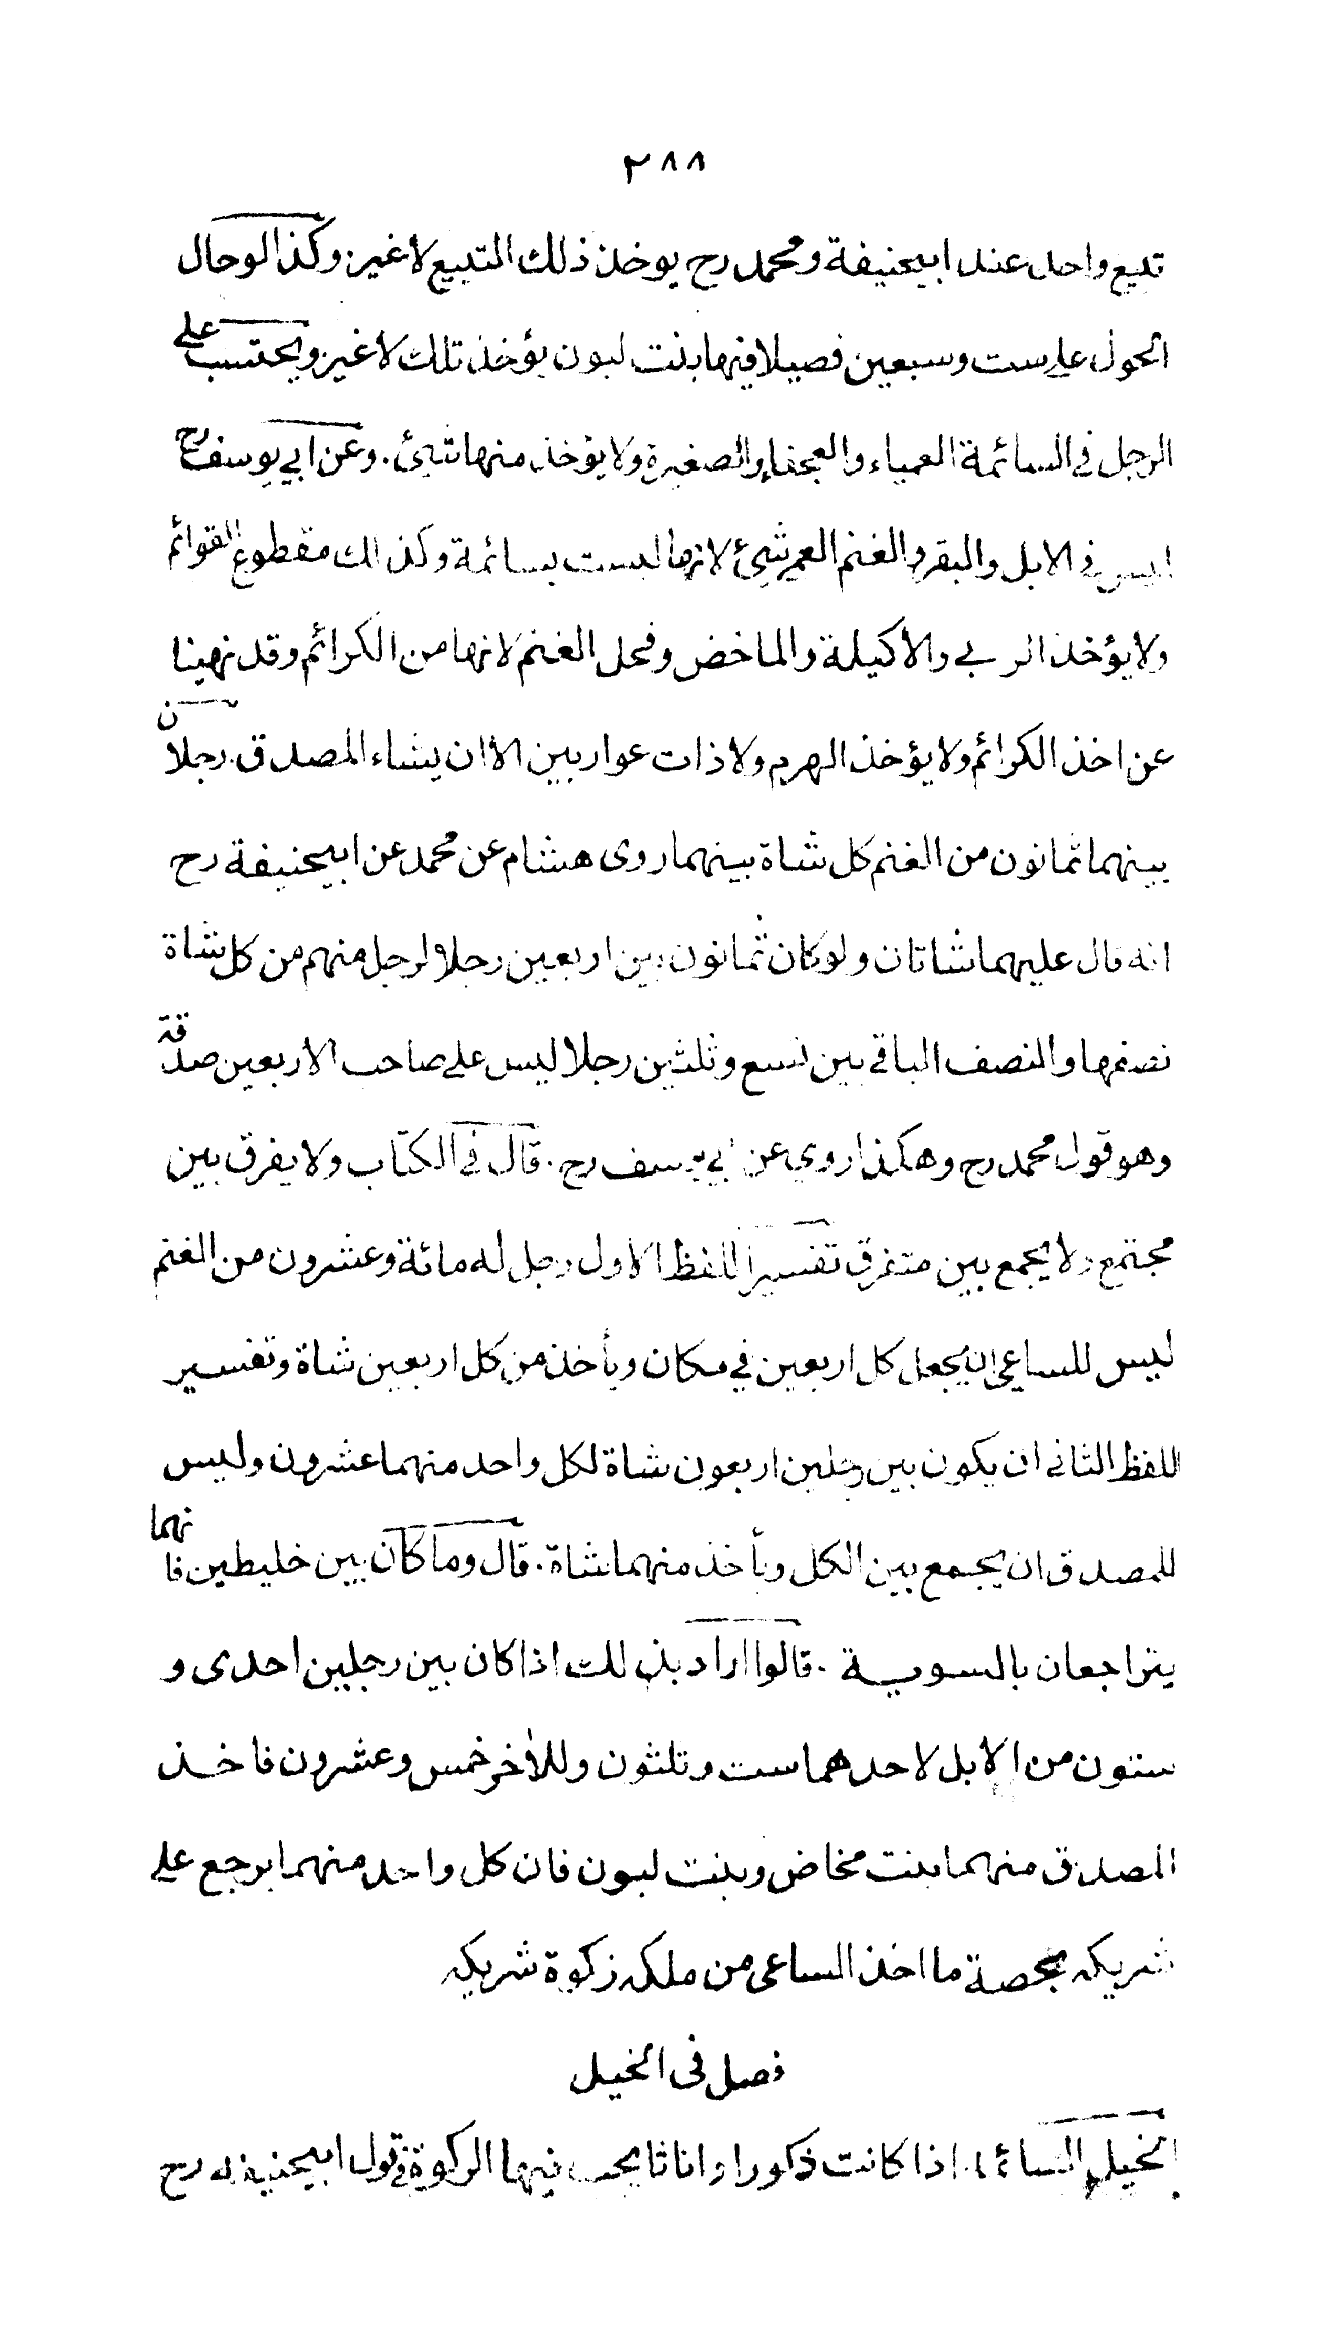 ٢٨٨
تبيع واحد عند ابيحنيفة ومحمد رح يوخذ ذلك التبيع لاغير وكذا لوحال
الحول على ست وسبعين فصيلا فيها بنت لبون يؤخذ تلك لاغير ويحتسب على
الرجل في السائمة العمياء والعجفاء والصغيرة ولا يؤخذ منها شئ . وعن ابي يوسف رح
ليس في الابل والبقر والغنم العمى شئ لانها ليست بسائمة وكذلك مقطوع القوائم
ولا يؤخذ الربى والاكيلة والماخض وفحل الغنم لانها من الكرائم وقد نهينا
عن اخذ الكرائم ولا يؤخذ الهرم ولا ذات عوار بين الا ان يشاء المصدق . رجلان
بينهما ثمانون من الغنم كل شاة بينهما روى هشام عن محمد عن ابيحنيفة رح
انه قال عليهما شاتان ولو كان ثمانون بين اربعين رجلا لرجل منهم من كل شاة
نصفها والنصف الباقي بين تسع وثلثين رجلا ليس على صاحب الاربعين صدقة
وهو قول محمد رح وهكذا روي عن ابي يوسف رح . قال في الكتاب ولا يفرق بين
مجتمع ولا يجمع بين متفرق تفسير اللفظ الاول رجل له مائة وعشرون من الغنم
ليس للساعي ان يجعل كل اربعين في مكان ويأخذ من كل اربعين شاة وتفسير
اللفظ الثاني ان يكون بين رجلين اربعون شاة لكل واحد منهما عشرون وليس
للمصدق ان يجمع بين الكل ويأخذ منهما شاة . قال وما كان بين خليطين فانهما
يتراجعان بالسوية . قالوا اراد بذلك اذا كان بين رجلين احدى و
ستون من الابل لاحدهما ست وثلثون وللأخر خمس وعشرون فاخذ
المصدق منهما بنت مخاض وبنت لبون فان كل واحد منهما يرجع على
شريكه بحصة ما اخذ الساعي من ملكه زكوة شريكه
فصل في الخيل
الخيل السائمة اذا كانت ذكورا واناثا يجب فيها الزكوة في قول ابيحنيفة رح